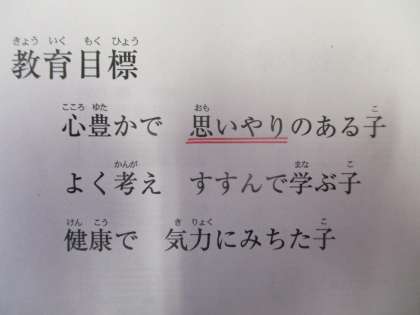 きょう いく もく ひょう
教育目標
こころ ゆた おも こ
心豊かで 思いやりのある子
かんが まな こ
よく考え すすんで学ぶ子
けん こう き りょく こ
健康で 気力にみちた子